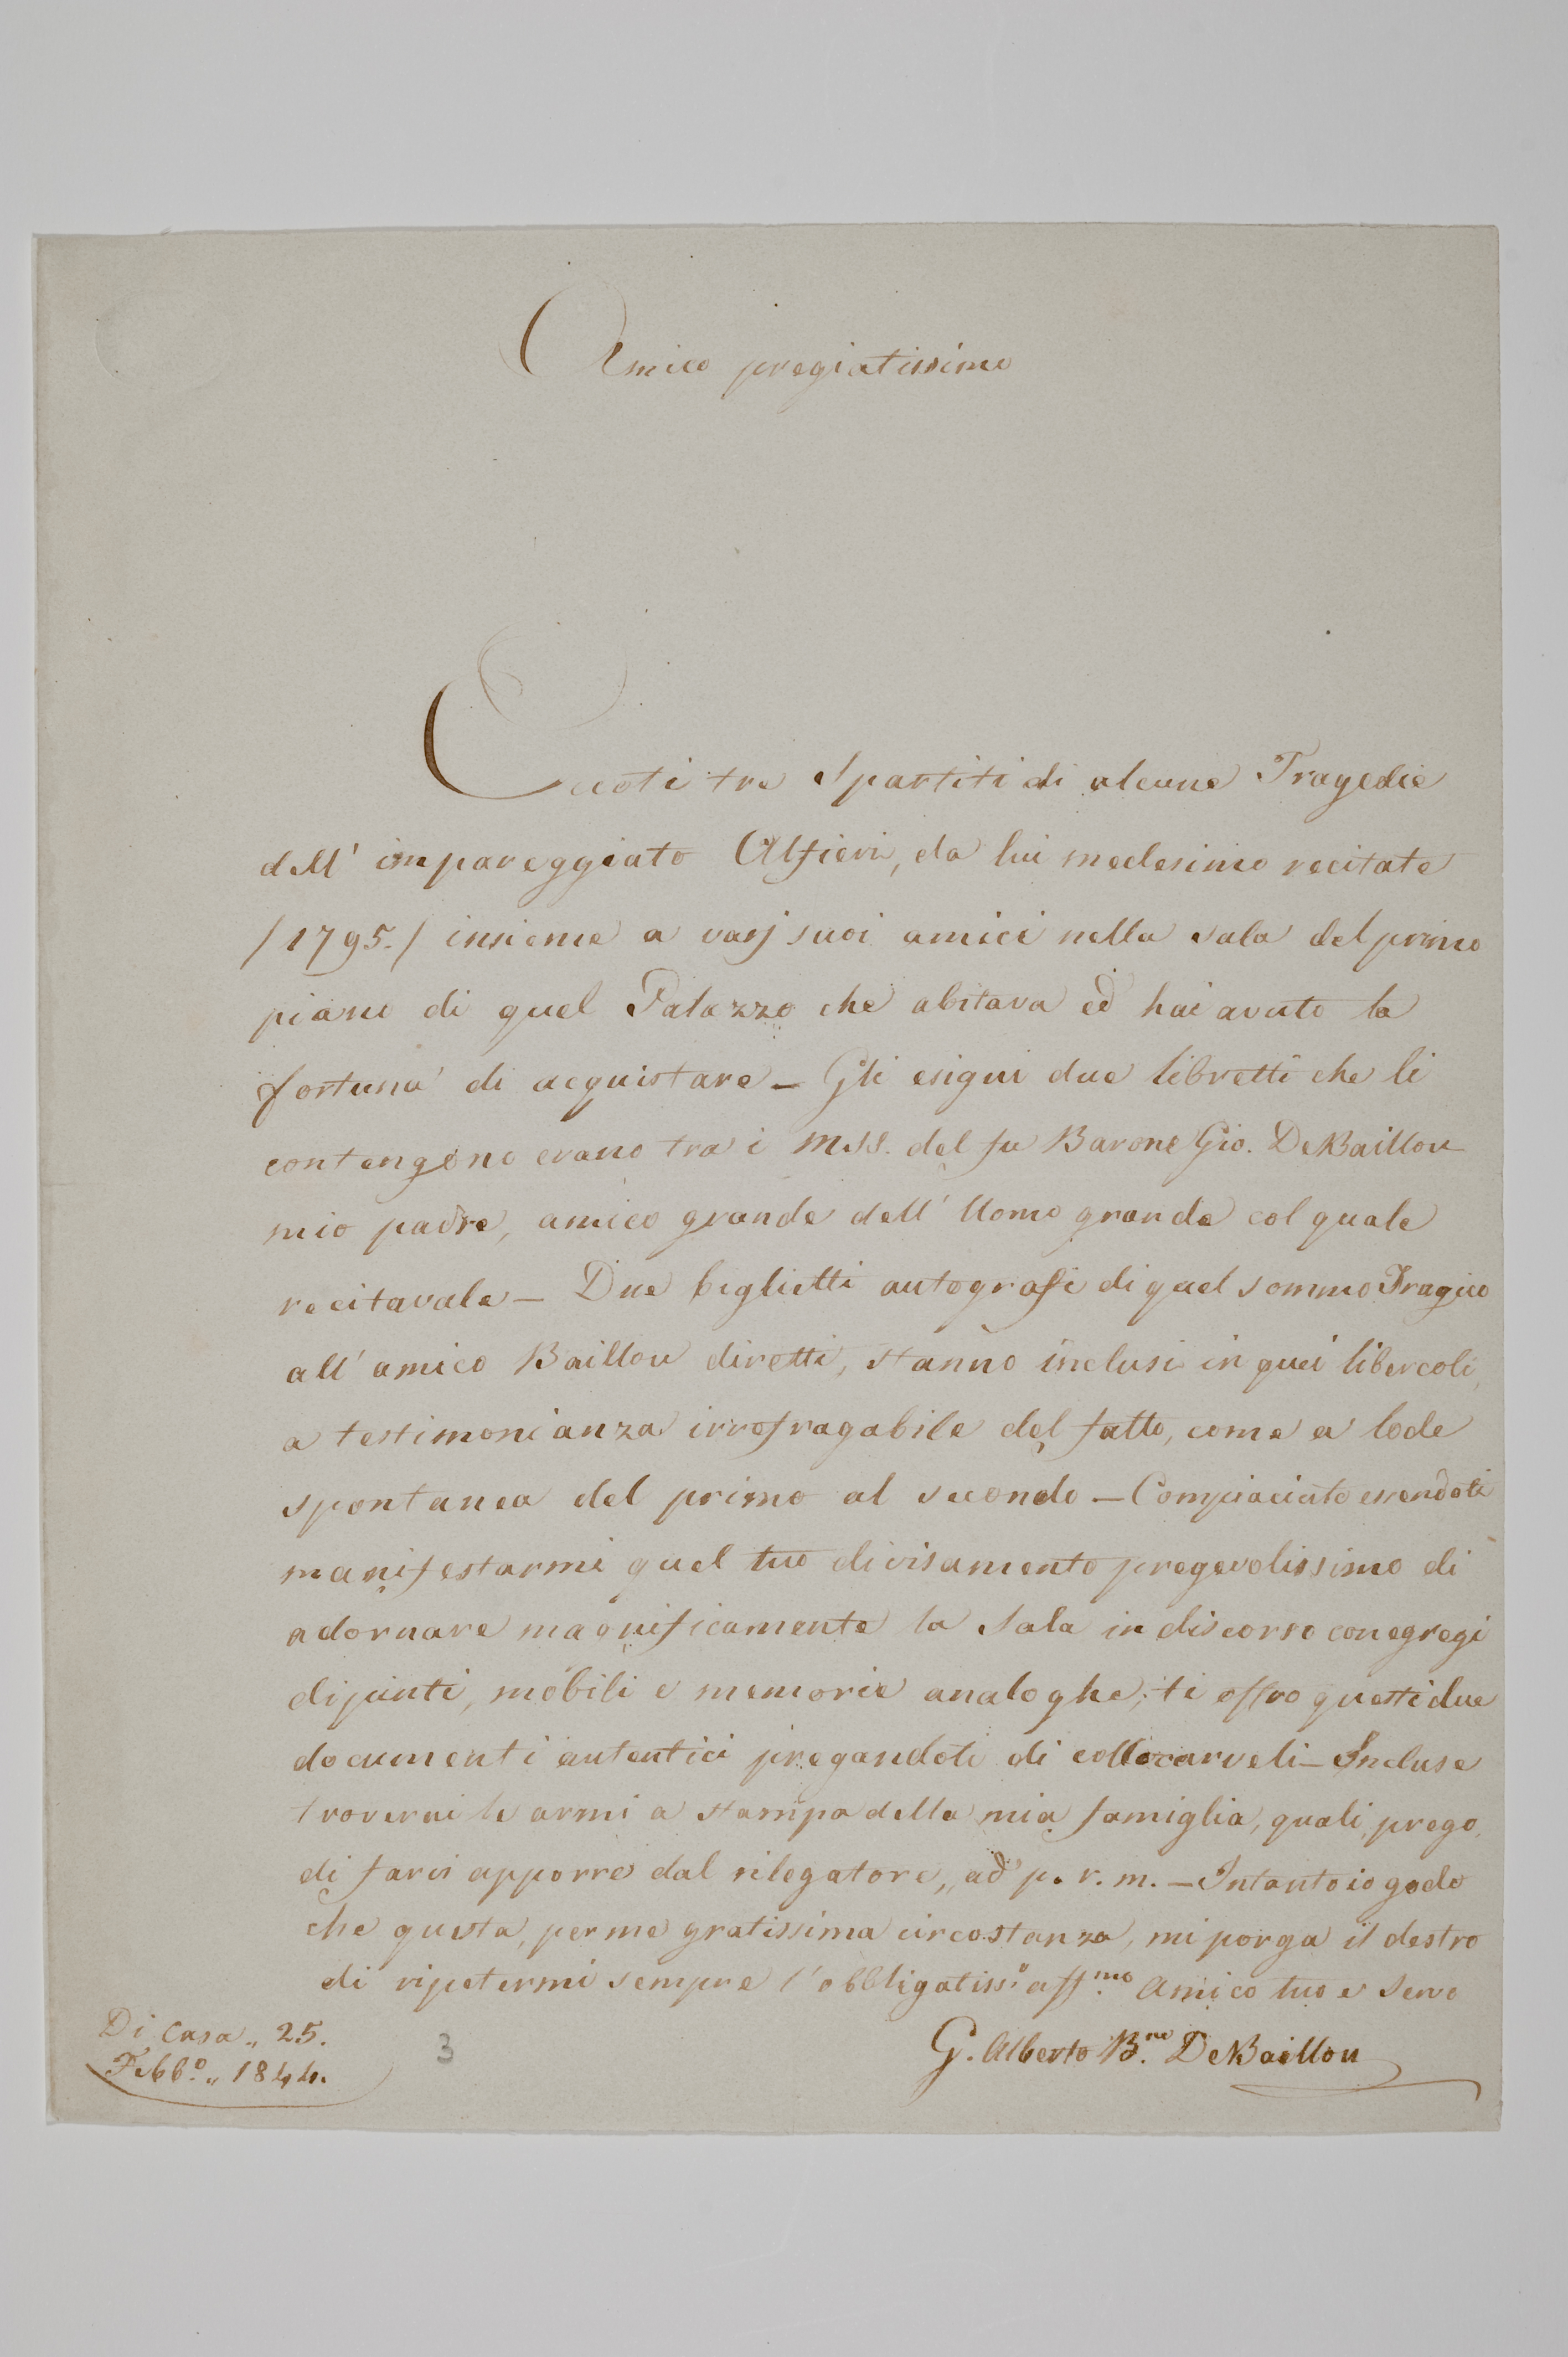 Amico pregiatissimo
Eccoti tre Spartiti di alcune Tragedie
dell' impareggiato Alfieri, da lui medesimo recitate
/1795./ insieme a varj suoi amici nella sala del primo
piano di quel Palazzo che abitava ed hai avuto la
fortuna di acquistare – Gli esigui due libretti che li
contengono erano tra i MSS. del fu Barone Gio. DeBaillou
mio padre, amico grande dell' Uomo grande col quale
recitavale – Due biglietti autografi di quel sommo Tragico
all' amico Baillou diretti, stanno inclusi in quei libercoli,
a testimonianza irrefragabile del fatto, come a lode
spontanea del primo al secondo – Compiaciuto essendoti
manifestarmi quel tuo divisamento pregevolissimo di
adornare magnificamente la Sala in discorso con egregi
dipinti, mobili e memorie analoghe, ti offro questi due
documenti autentici pregandoti di collocarveli – Incluse
troverai le armi a stampa della mia famiglia, quali prego
di farvi apporre dal rilegatore, ad p. r. m. – Intanto io godo
che questa, per me gratissima circostanza, mi porga il destro
di ripetermi sempre l'obbligatiss.º aff.mo Amico tuo e Servo
G. Alberto B.ne DeBaillou
Di Casa „ 25.
Febb.º „ 1844.
3